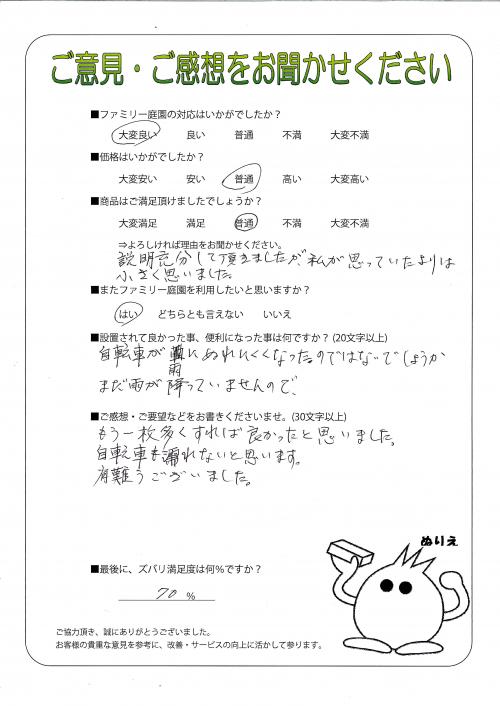 ご意見・ご感想をお聞かせください
■ファミリー庭園の対応はいかがでしたか？
大変良い　良い　普通　不満　大変不満
■価格はいかがでしたか？
大変安い　安い　普通　高い　大変高い
■商品はご満足頂けましたでしょうか？
大変満足　満足　普通　不満　大変不満
⇒よろしければ理由をお聞かせください。
説明充分して頂きましたが、私が思っていたよりは
小さく思いました。
■またファミリー庭園を利用したいと思いますか？
はい　どちらとも言えない　いいえ
■設置されて良かった事、便利になった事は何ですか？(20文字以上)
自転車が雨にぬれにくくなったのではないでしょうか
まだ雨が降っていませんので、
■ご感想・ご要望などをお書きくださいませ。(30文字以上)
もう一枚多くすれば良かったと思いました。
自転車も濡れないと思います。
有難うございました。
ぬりえ
■最後に、ズバリ満足度は何％ですか？
70 %
ご協力頂き、誠にありがとうございました。
お客様の貴重な意見を参考に、改善・サービスの向上に活かして参ります。